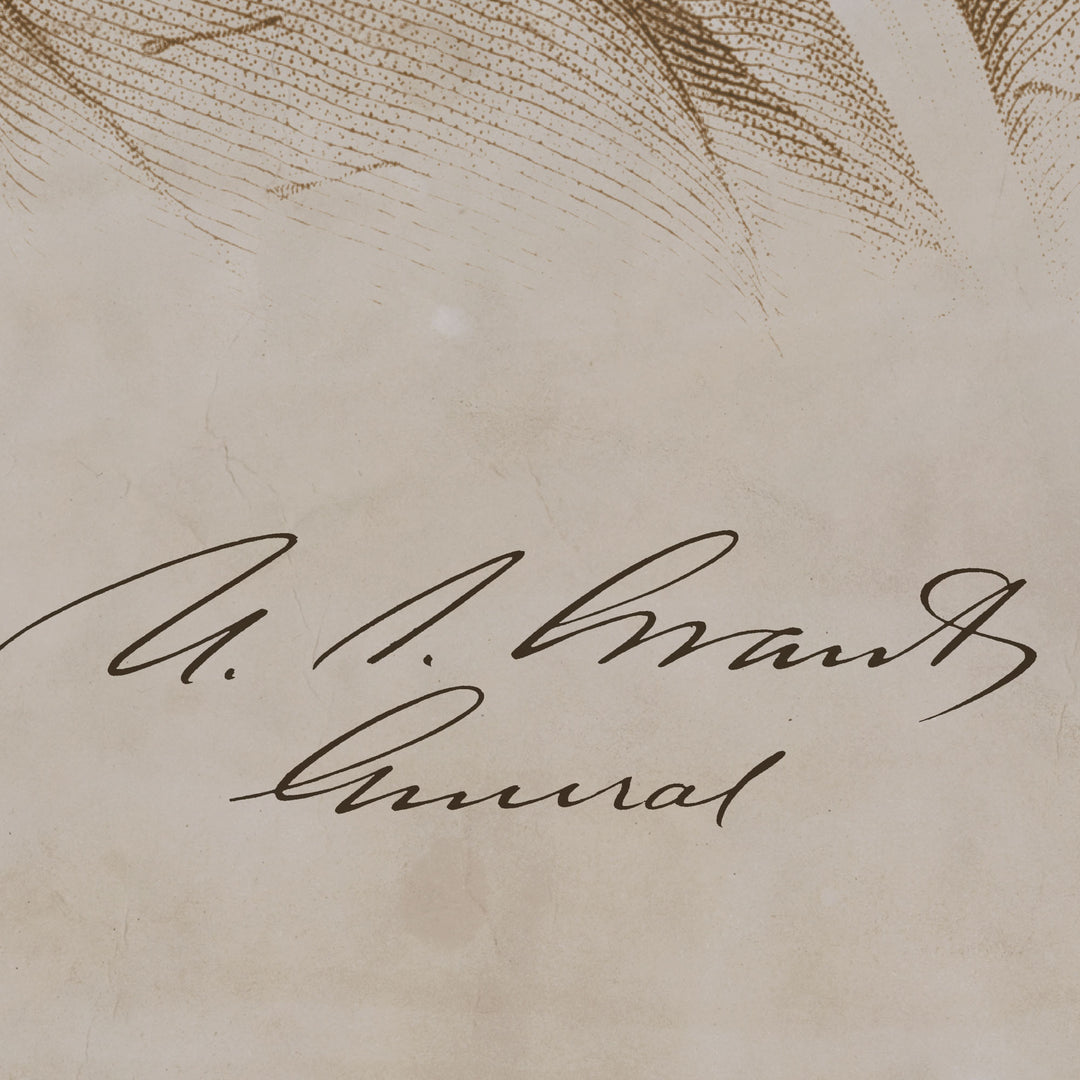 U. S. Grant
General